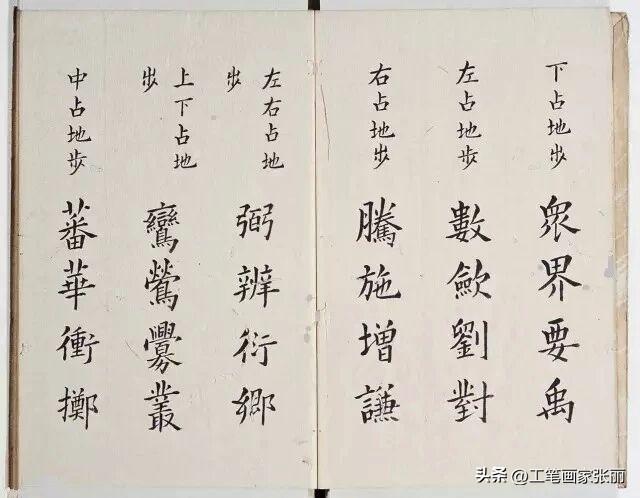 下占地步
眾界要禹
左占地步
數歛劉對
右占地步
騰施增謙
左右占地
步
弼辨衍鄉
上下占地
步
鸞鶯爨叢
中占地步
蕃華衝擲
头条 @工笔画家张丽